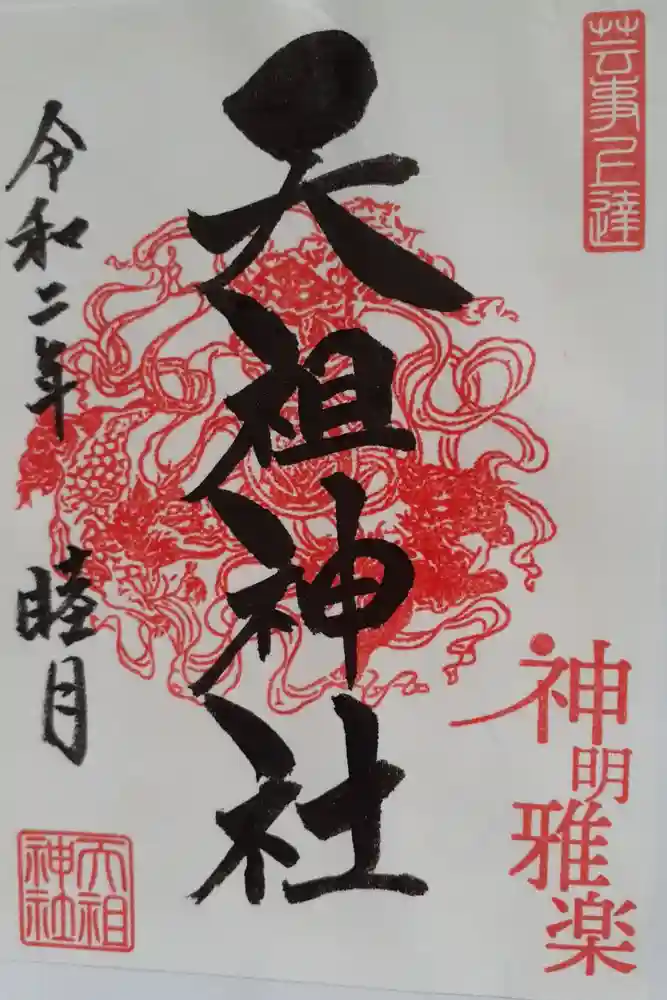 芸事上達
神明雅楽
天祖神社
令和二年
睦月
天祖
神社